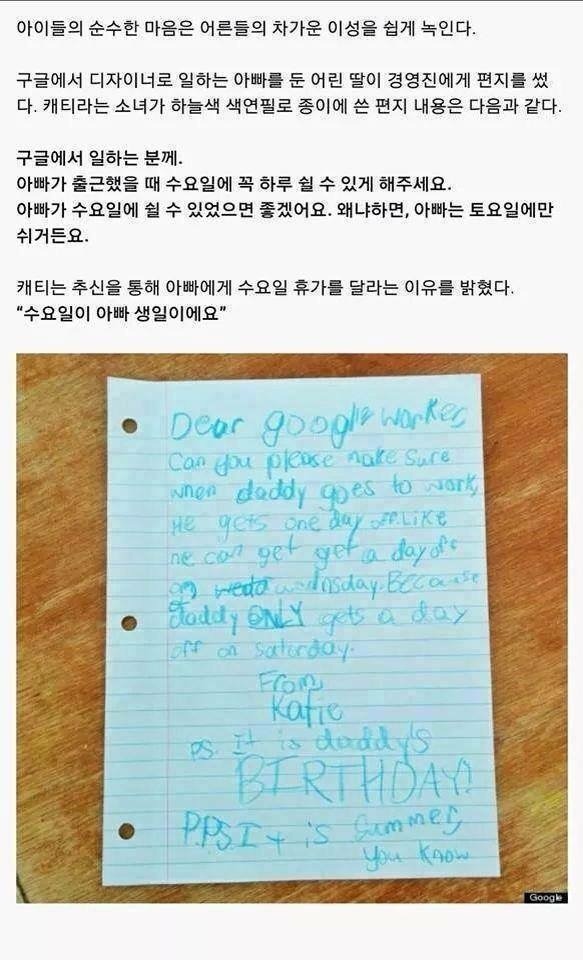 아이들의 순수한 마음은 어른들의 차가운 이성을 쉽게 녹인다.
구글에서 디자이너로 일하는 아빠를 둔 어린 딸이 경영진에게 편지를 썼
다. 캐티라는 소녀가 하늘색 색연필로 종이에 쓴 편지 내용은 다음과 같다.
구글에서 일하는 분께.
아빠가 출근했을 때 수요일에 꼭 하루 쉴 수 있게 해주세요.
아빠가 수요일에 쉴 수 있었으면 좋겠어요. 왜냐하면, 아빠는 토요일에만
쉬거든요.
캐티는 추신을 통해 아빠에게 수요일 휴가를 달라는 이유를 밝혔다.
“수요일이 아빠 생일이에요”
Dear google worker,
Can you please make sure
when daddy goes to work,
He gets one day off. Like
he can get get a day off
on wednsday. BECAUSE
daddy ONLY gets a day
off on saturday.
From,
Katie
PS. It is daddy's
BIRTHDAY!
P.P.S. It is summer,
you know
Google